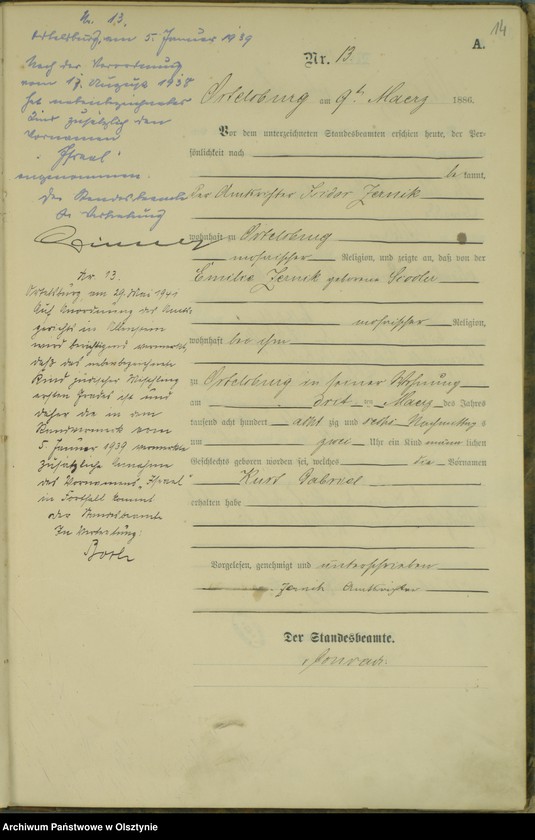 14
A.
Nr. 13.
Ortelsburg am 9ten Maerz 1886.
Vor dem unterzeichneten Standesbeamten erschien heute, der Per-
sönlichkeit nach
be kannt,
der Amtsrichter Isidor Zernik
wohnhaft zu Ortelsburg
mosaischer Religion, und zeigte an, daß von der
Emilie Zernik geborene
mosaischer Religion,
wohnhaft bei ihm
zu Ortelsburg in seiner Wohnung
am drit ten Maerz des Jahres
tausend acht hundert acht zig und sechs Nachmittags
um zwei Uhr ein Kind männ lichen
Geschlechts geboren worden sei, welches die Vornamen
Kurt Gabriel
erhalten habe
Vorgelesen, genehmigt und unterschrieben
Zernik Amtsrichter
Der Standesbeamte.
Nr. 13.
Ortelsburg, am 5. Januar 1939
Nach der Verordnung
vom 17. August 1938
hat nebenbezeichnetes
Kind zusätzlich den
Vornamen
"Israel"
angenommen.
Der Standesbeamte
In Vertretung
Nr. 13.
Ortelsburg am 29. Mai 1941
Auf Anordnung des Amts-
gerichts in Allenstein
wird berichtigend vermerkt,
daß das nebenbezeichnete
Kind jüdischer Mischling
ersten Grades ist und
daher die in dem
Randvermerk vom
5. Januar 1939 vermerkte
zusätzliche Annahme
des Vornamens "Israel"
in Fortfall kommt
Der Standesbeamte
In Vertretung:
Archiwum Państwowe w Olsztynie